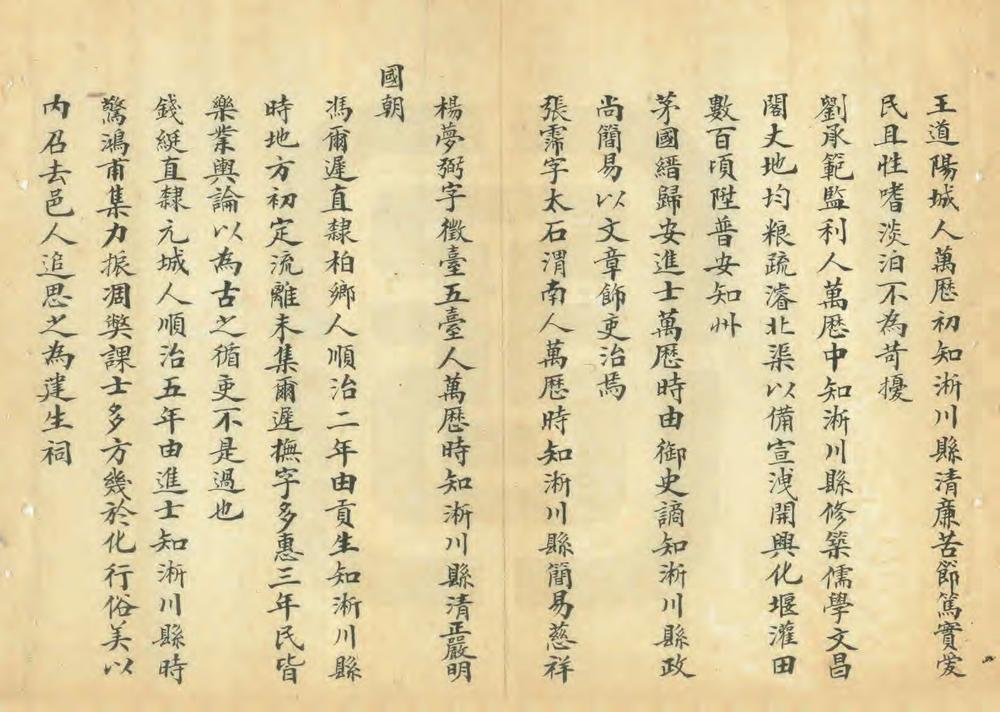 王道陽城人萬歷初知淅川縣清廉苦節篤實愛
民且性嗜淡泊不為苛擾
劉承範監利人萬歷中知淅川縣修築儒學文昌
閣丈地均粮疏濬北渠以備宣洩開興化堰灌田
數百頃陞普安知州
茅國縉歸安進士萬歷時由御史謫知淅川縣政
尚簡易以文章飾吏治焉
張霈字太石渭南人萬歷時知淅川縣簡易慈祥
楊夢弼字徵臺五臺人萬歷時知淅川縣清正嚴明
國朝
馮爾遲直隸柏鄉人順治二年由貢生知淅川縣
時地方初定流離未集爾遲撫字多惠三年民皆
樂業輿論以為古之循吏不是過也
錢綎直隸元城人順治五年由進士知淅川縣時
驚鴻甫集力振凋獘課士多方幾於化行俗美以
內召去邑人追思之為建生祠